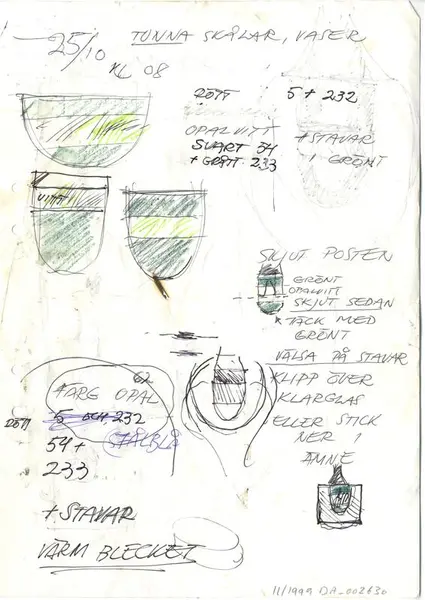 25/10 TUNNA SKÅLAR, VASER
KL 08
RÖTT 5 + 232
OPALVITT
SVART 54
+ GRÅTT 233
+ STAVAR
I GRÖNT
VITT
SKJUT POSTEN
GRÖNT
OPALVITT
SKJUT SEDAN
TÄCK MED
GRÖNT
VÄLSA PÅ STAVAR
KLIPP ÖVER
KLARGLAS
ELLER STICK
NER I
ÄMNE
62
FÄRG OPAL
RÖTT 5 OCH 232
STÅLBLÅ
54 +
233
+ STAVAR
VÄRM BLECKET
11/1999 DA_002630